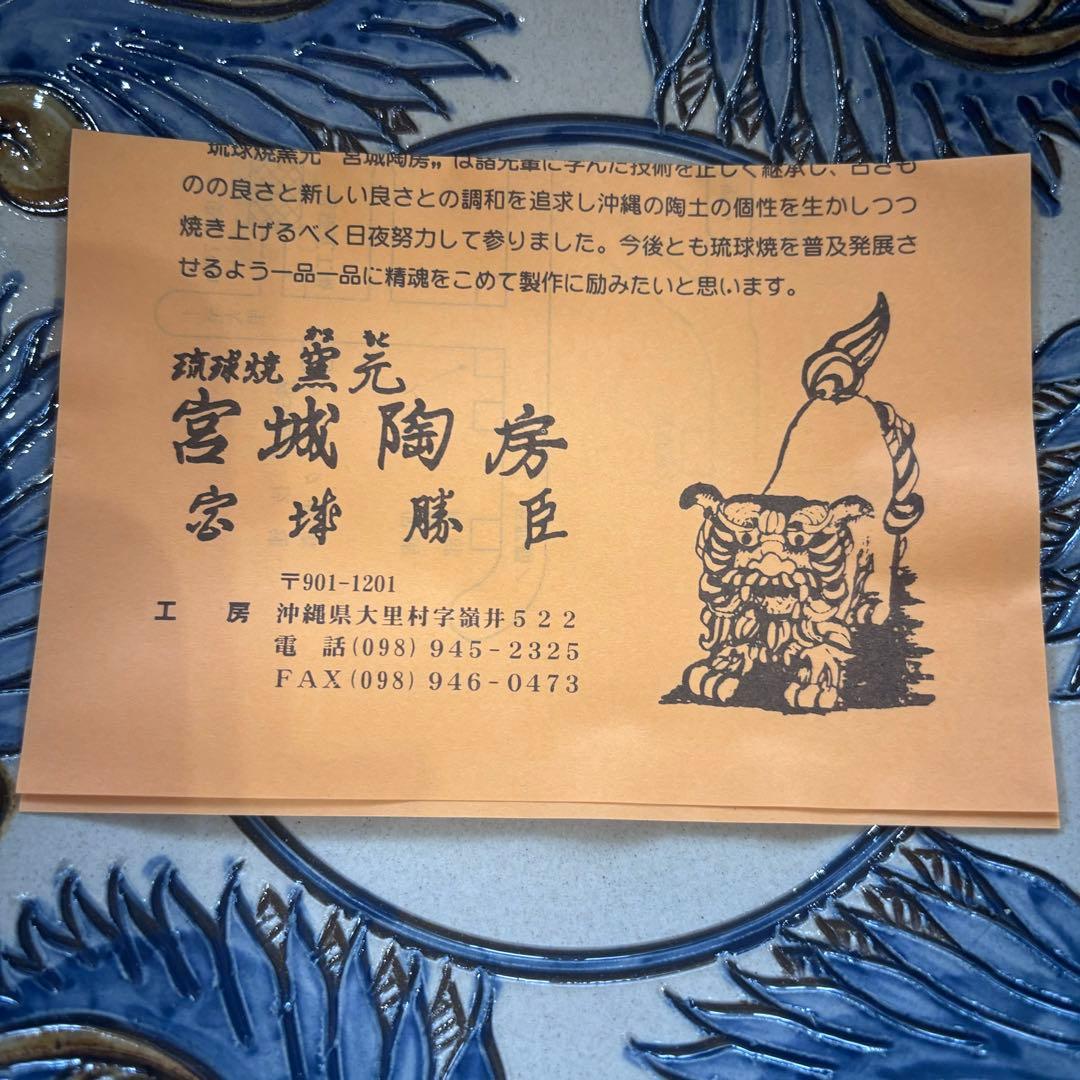 琉球焼窯元"宮城陶房"は諸先輩に学んだ技術を正しく継承し、古きも
のの良さと新しい良さとの調和を追求し沖縄の陶土の個性を生かしつつ
焼き上げるべく日夜努力して参りました。今後とも琉球焼を普及発展さ
せるよう一品一品に精魂をこめて製作に励みたいと思います。
かま もと
琉球焼 窯元
宮城陶房
宮城 勝臣
〒901-1201
工 房 沖縄県大里村字嶺井522
電 話(098)945-2325
FAX(098)946-0473